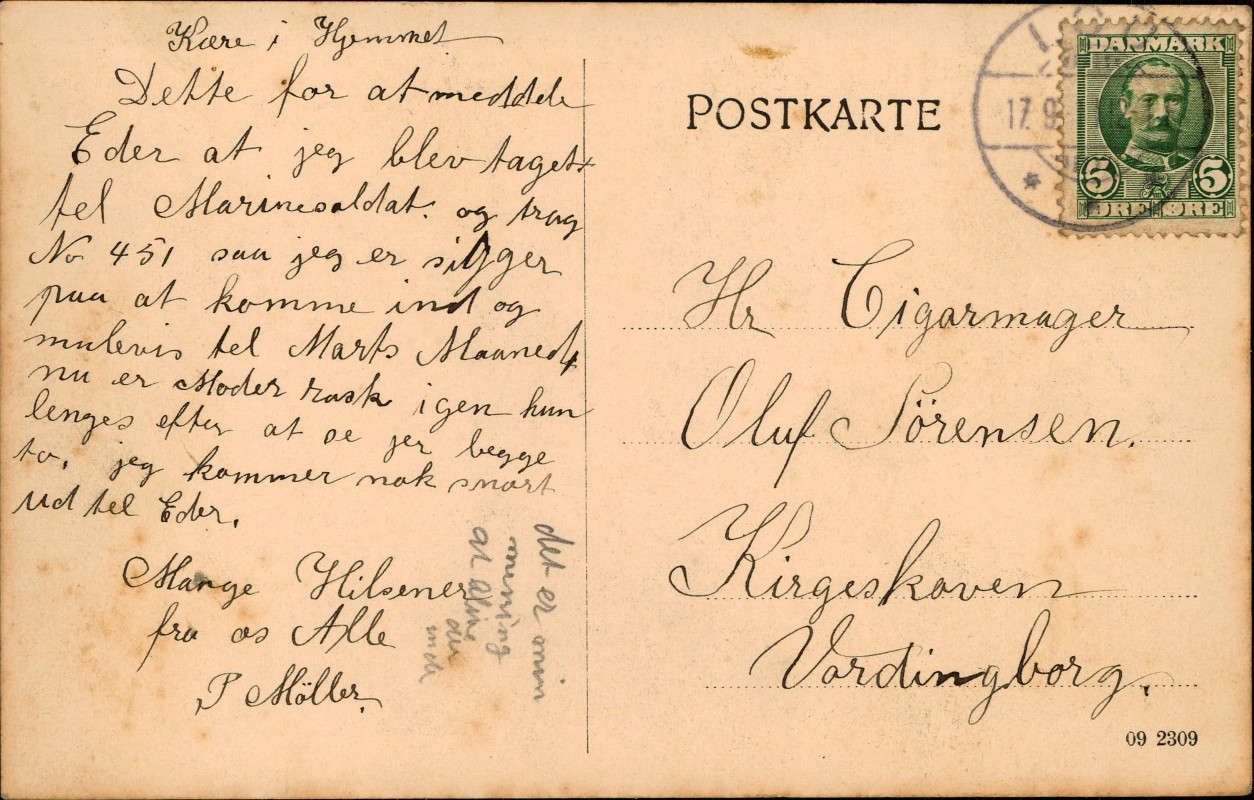 Kære i Hjemmet
Dette for at meddele
Eder at jeg blev taget
tel Marinesoldat. og trag
No 451 saa jeg er sigger
paa at komme ind og
mulevis tel Marts Maaned
nu er Moder rask igen hun
lenges efter at se jer begge
to. jeg kommer nok snart
ud tel Eder.
Mange Hilsener
fra os Alle
P Möller.
det er min
mening
at
POSTKARTE
17. 9
DANMARK
5 5
ØRE ØRE
Hr Cigarmager
Oluf Sörensen.
Kirgeskoven
Vordingborg.
09 2309